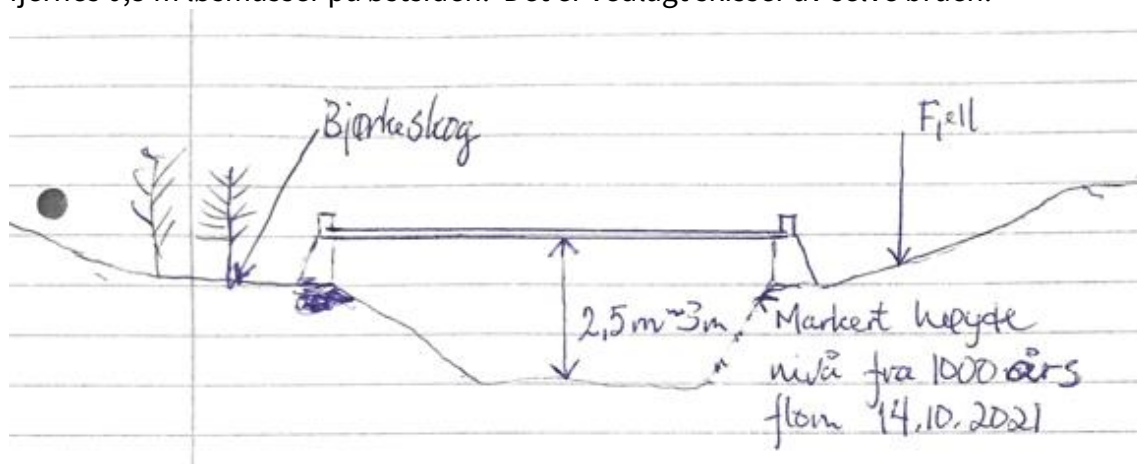 Bjørkeskog
Fjell
2,5m~3m
Markert høyde
nivå fra 1000 års
flom 14.10.2021